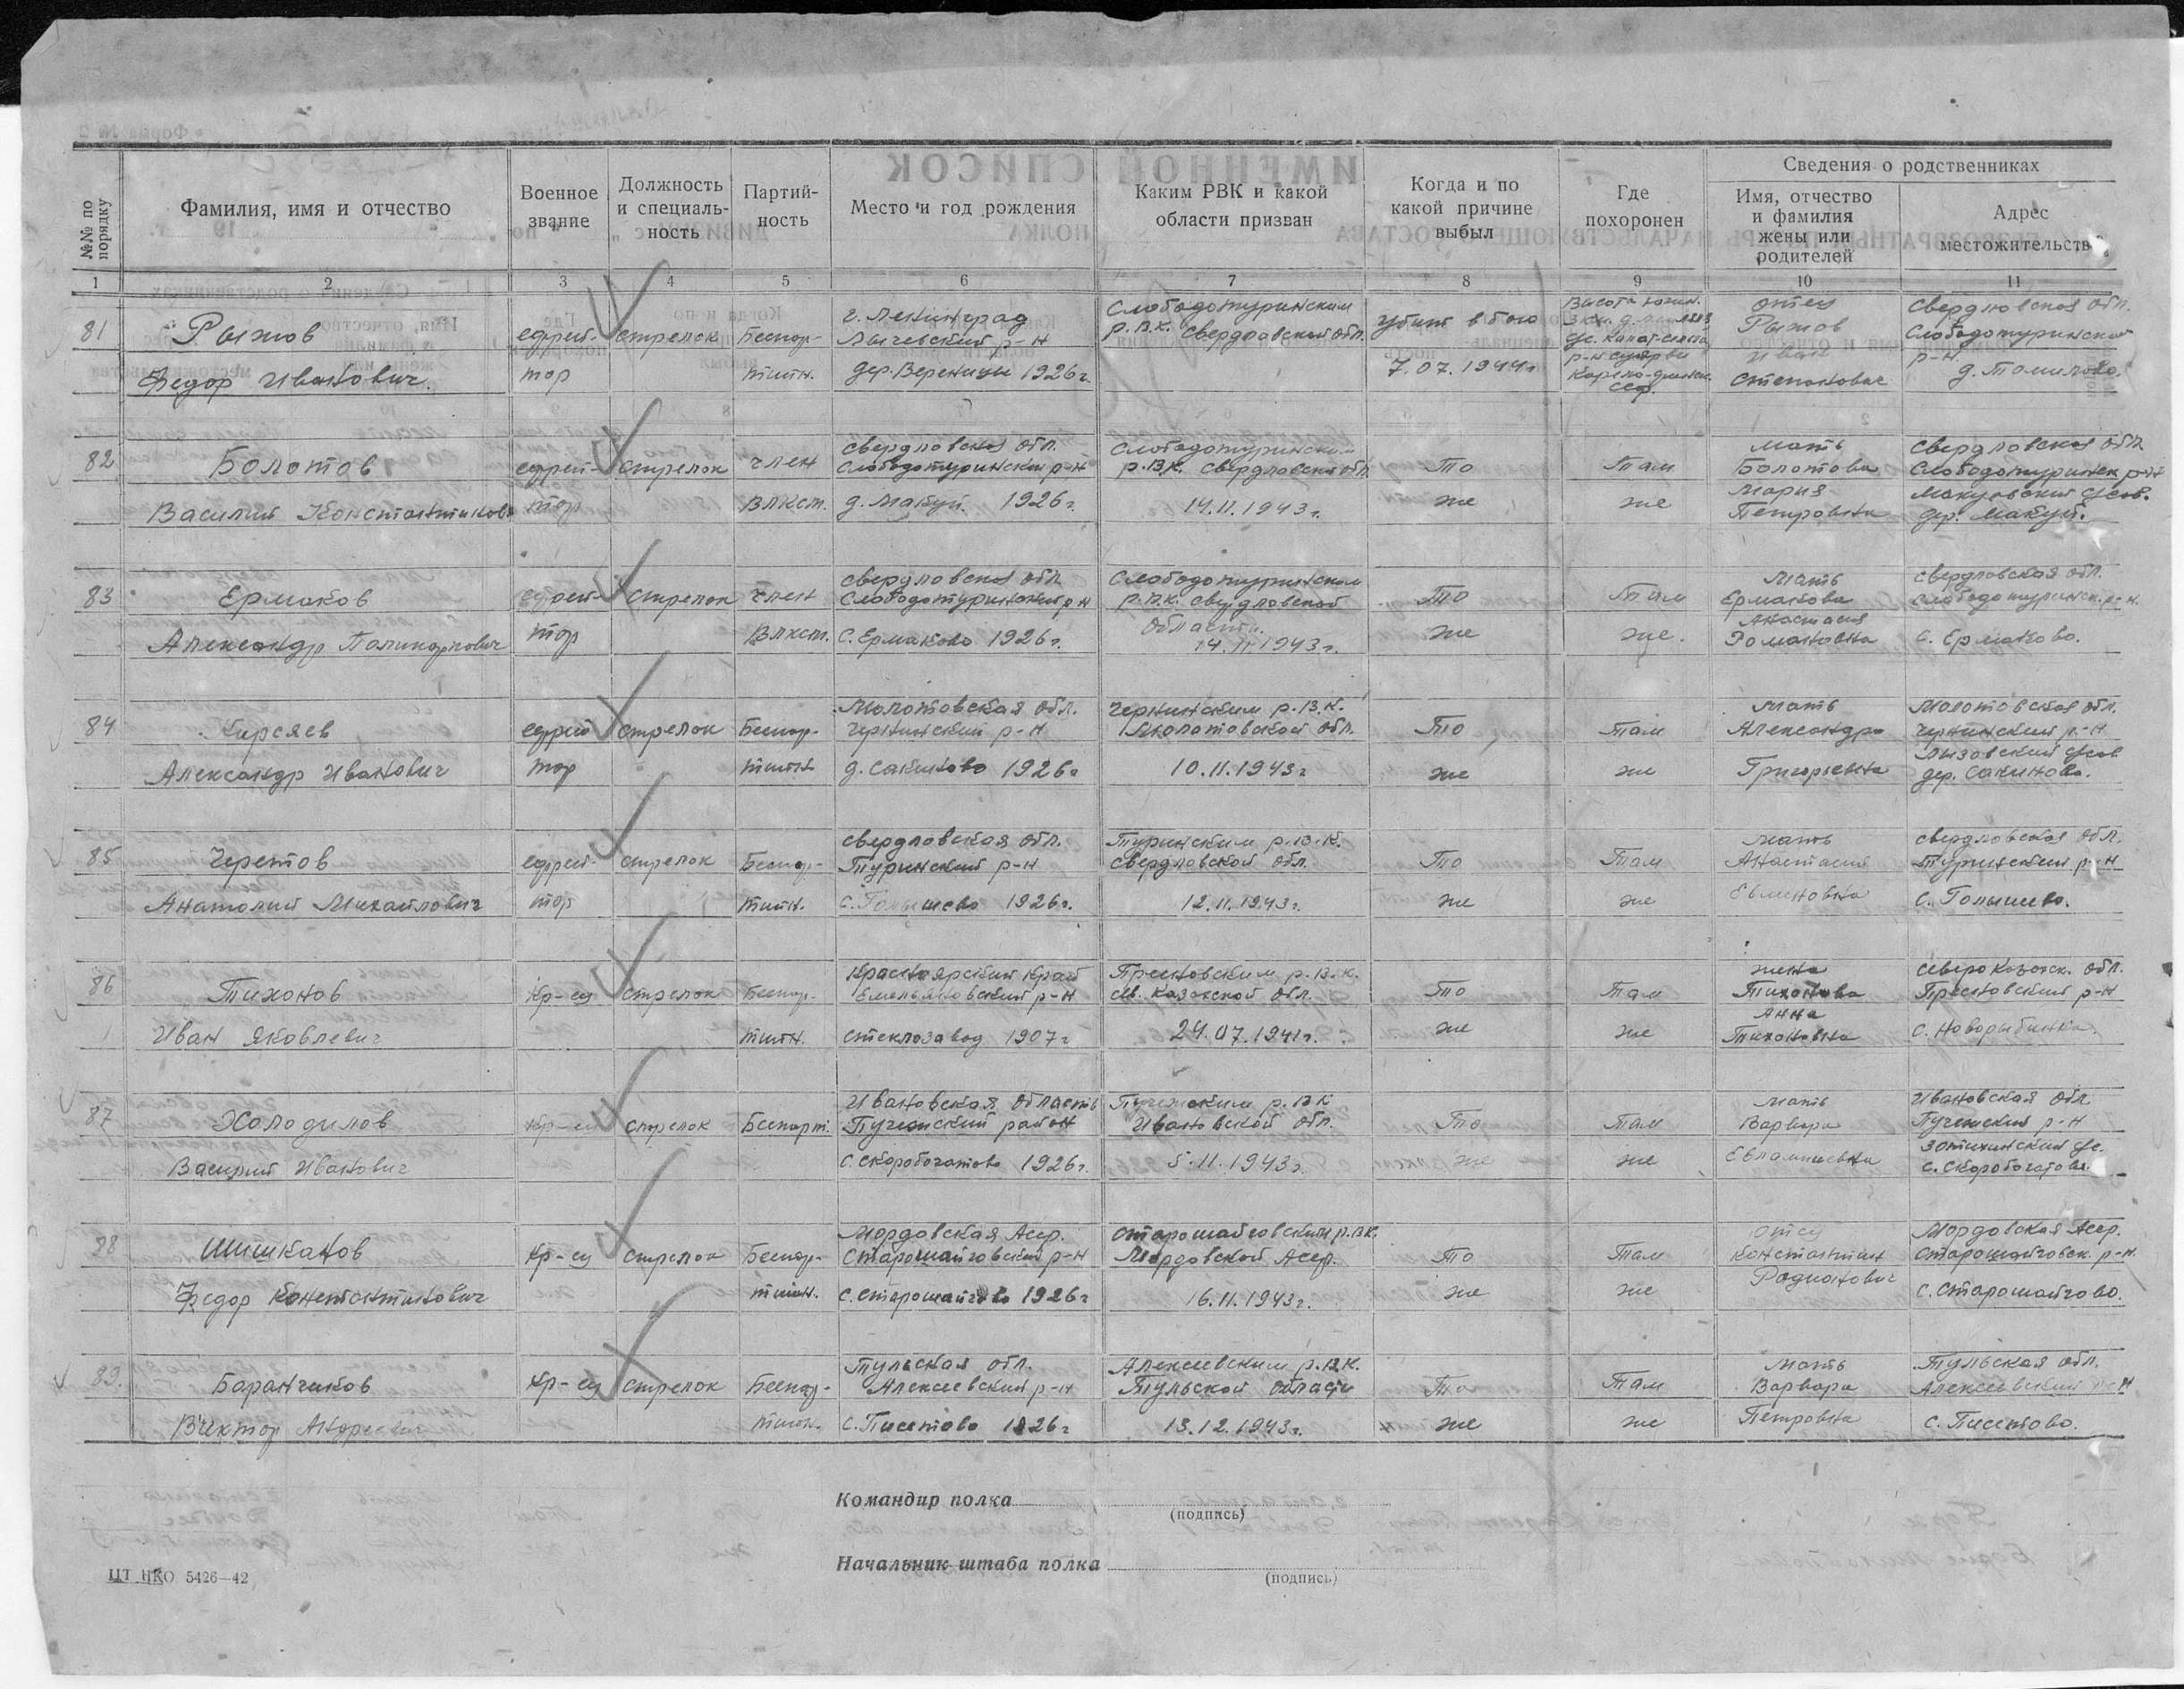 №№ по порядку
Фамилия, имя и отчество
Военное звание
Должность и специаль-ность
Партий-ность
Место и год рождения
Каким РВК и какой области призван
Когда и по какой причине выбыл
Где похоронен
Сведения о родственниках
Имя, отчество и фамилия жены или родителей
Адрес местожительств
1 2 3 4 5 6 7 8 9 10 11
81
Рыжов
Федор Иванович.
ефрей-
тор
стрелок
Беспар-
тийн.
г. Ленинград
Лычевский р-н
дер. Вереницы 1926г.
Слободотуринским
р.в.к. Свердловской обл.
убит в бою
7.07.1944г
Высота
р-н Суярви
Карело-финск.
ССР.
отец
Рыжов
Иван
Степанович
Свердловская обл.
Слободотуринский
р-н.
д. Томилово.
82
Болотов
Василий Константинов
ефрей-
тор
стрелок
член
ВЛКСМ.
Свердловская обл.
Слободотуринский р-н
д. Макуй. 1926г.
Слободотуринским
р.в.к. Свердловской обл.
14.11.1943г.
То
же
Там
же
мать
Болотова
Мария
Петровна
Свердловская обл.
Слободотуринск р-н
Макуевский с/сов.
дер. Макуй.
83
Ермаков
Александр Поликарпович
ефрей-
тор
стрелок
член
ВЛКСМ.
Свердловская обл.
Слободотуринский р-н
с. Ермаково 1926г.
Слободотуринским
р.в.к. Свердловской
области.
14.11.1943г.
То
же
Там
же.
Мать
Ермакова
Анастасия
Романовна
Свердловская обл.
Слободотуринск. р-н.
с. Ермаково.
84
Кирсяев
Александр Иванович
ефрей
тор
стрелок
Беспар-
тийн
Молотовская обл.
Чернинский р-н
д. Сакиново 1926г
Чернинским р.в.к.
Молотовской обл.
10.11.1943г
То
же
Там
же
Мать
Александра
Григорьевна
Молотовская обл.
Чернинский р-н
дер. Сакиново.
85
Черетов
Анатолий Михайлович
ефрей-
тор
стрелок
Беспар-
тийн.
Свердловская обл.
Туринский р-н
1926г.
Туринским р.в.к.
Свердловской обл.
12.11.1943г.
То
же
Там
же
мать
Анастасия
Свердловская обл.
Туринский р-н
86
Тихонов
Иван Яковлевич
Кр-ец
стрелок
Беспар-
тийн.
Красноярский край
Емельяновский р-н
стеклозавод 1907г
Пресновским р.в.к.
сев. Казахской обл.
24.07.1941г.
То
же
Там
же
жена
Тихонова
Анна
Тихоновна
Северо Казахск. обл.
Пресновский р-н
с. Новорыбинка.
87
Холодилов
Василий Иванович
Кр-ец
стрелок
Беспарт.
Ивановская область
Пучежский район
с. Скоробогатово 1926г.
Пучежским р.в.к
Ивановской обл.
5.11.1943г.
То
же
Там
же
мать
Варвара
Евлампиевна
Ивановская обл
Пучежский р-н
Зотихинский с/с.
с. Скоробогатово.
88
Шишканов
Федор Константинович
Кр-ец
стрелок
Беспар-
тийн.
Мордовская Асср.
Старошайговский р-н
с. Старошайгово 1926г
Старошайговским р.в.к.
Мордовской Асср.
16.11.1943г.
То
же
Там
же
отец
Константин
Родионович
Мордовская Асср.
Старошайговск. р-н.
с. Старошайгово.
89.
Баранчиков
Виктор Андреевич
Кр-ец
стрелок
Беспар-
тийн.
Тульская обл.
Алексеевский р-н
1926г
Алексеевским р.в.к.
Тульской области
13.12.1943г.
То
же
Там
же
Мать
Варвара
Петровна
Тульская обл.
Алексеевский р-н
Командир полка
(подпись)
Начальник штаба полка
(подпись)
ЦТ НКО 5426—42